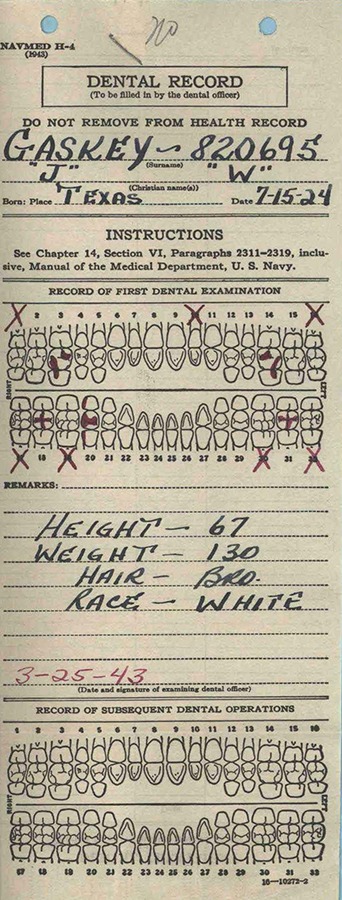 NAVMED H-4
(1943)
no
DENTAL RECORD
(To be filled in by the dental officer)
DO NOT REMOVE FROM HEALTH RECORD
GASKEY - 820695
(Surname)
"J" "W"
(Christian name(s))
Born: Place TEXAS Date 7-15-24
INSTRUCTIONS
See Chapter 14, Section VI, Paragraphs 2311-2319, inclu-
sive, Manual of the Medical Department, U. S. Navy.
RECORD OF FIRST DENTAL EXAMINATION
2 3 4 5 6 7 8 9 11 12 13 14 15
RIGHT LEFT
18 20 21 22 23 24 25 26 27 28 29 31
REMARKS:
HEIGHT - 67
WEIGHT - 130
HAIR - BRO.
RACE - WHITE
3-25-43
(Date and signature of examining dental officer)
RECORD OF SUBSEQUENT DENTAL OPERATIONS
1 2 3 4 5 6 7 8 9 10 11 12 13 14 15 16
RIGHT LEFT
17 18 19 20 21 22 23 24 25 26 27 28 29 30 31 32
16-10272-2